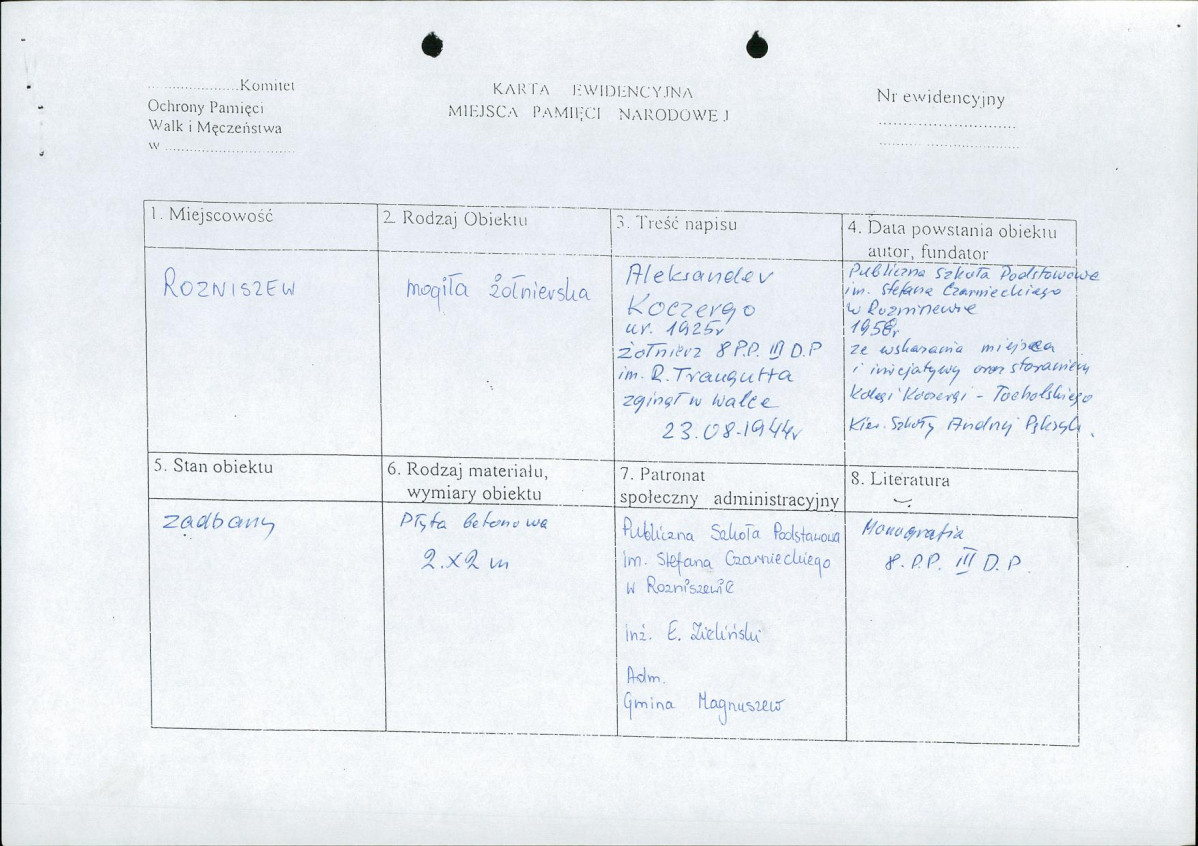 ....................Komitet
Ochrony Pamięci
Walk i Męczeństwa
w ..............................
KARTA EWIDENCYJNA
MIEJSCA PAMIĘCI NARODOWEJ
Nr ewidencyjny
1. Miejscowość
ROZNISZEW
2. Rodzaj Obiektu
mogiła żołnierska
3. Treść napisu
Aleksander
Koczergo
ur. 1925r
żołnierz 8 P.P. III D.P
im. R. Traugutta
zginął w walce
23.08.1944r
4. Data powstania obiektu
autor, fundator
Publiczna Szkoła Podstawowa
im. Stefana Czarnieckiego
w
1958r
ze wskazania miejsca
i inicjatywy oraz staraniem
Kolegi Koczergi - Tocholskiego
Kier. Szkoły Andrzej
5. Stan obiektu
zadbany
6. Rodzaj materiału,
wymiary obiektu
Płyta betonowa
2 x 2 m
7. Patronat
społeczny administracyjny
Publiczna Szkoła Podstawowa
im. Stefana Czarnieckiego
w Rozniszewie
inż. E. Zieliński
Adm.
Gmina Magnuszew
8. Literatura
Monografia
8. P.P. III D.P.